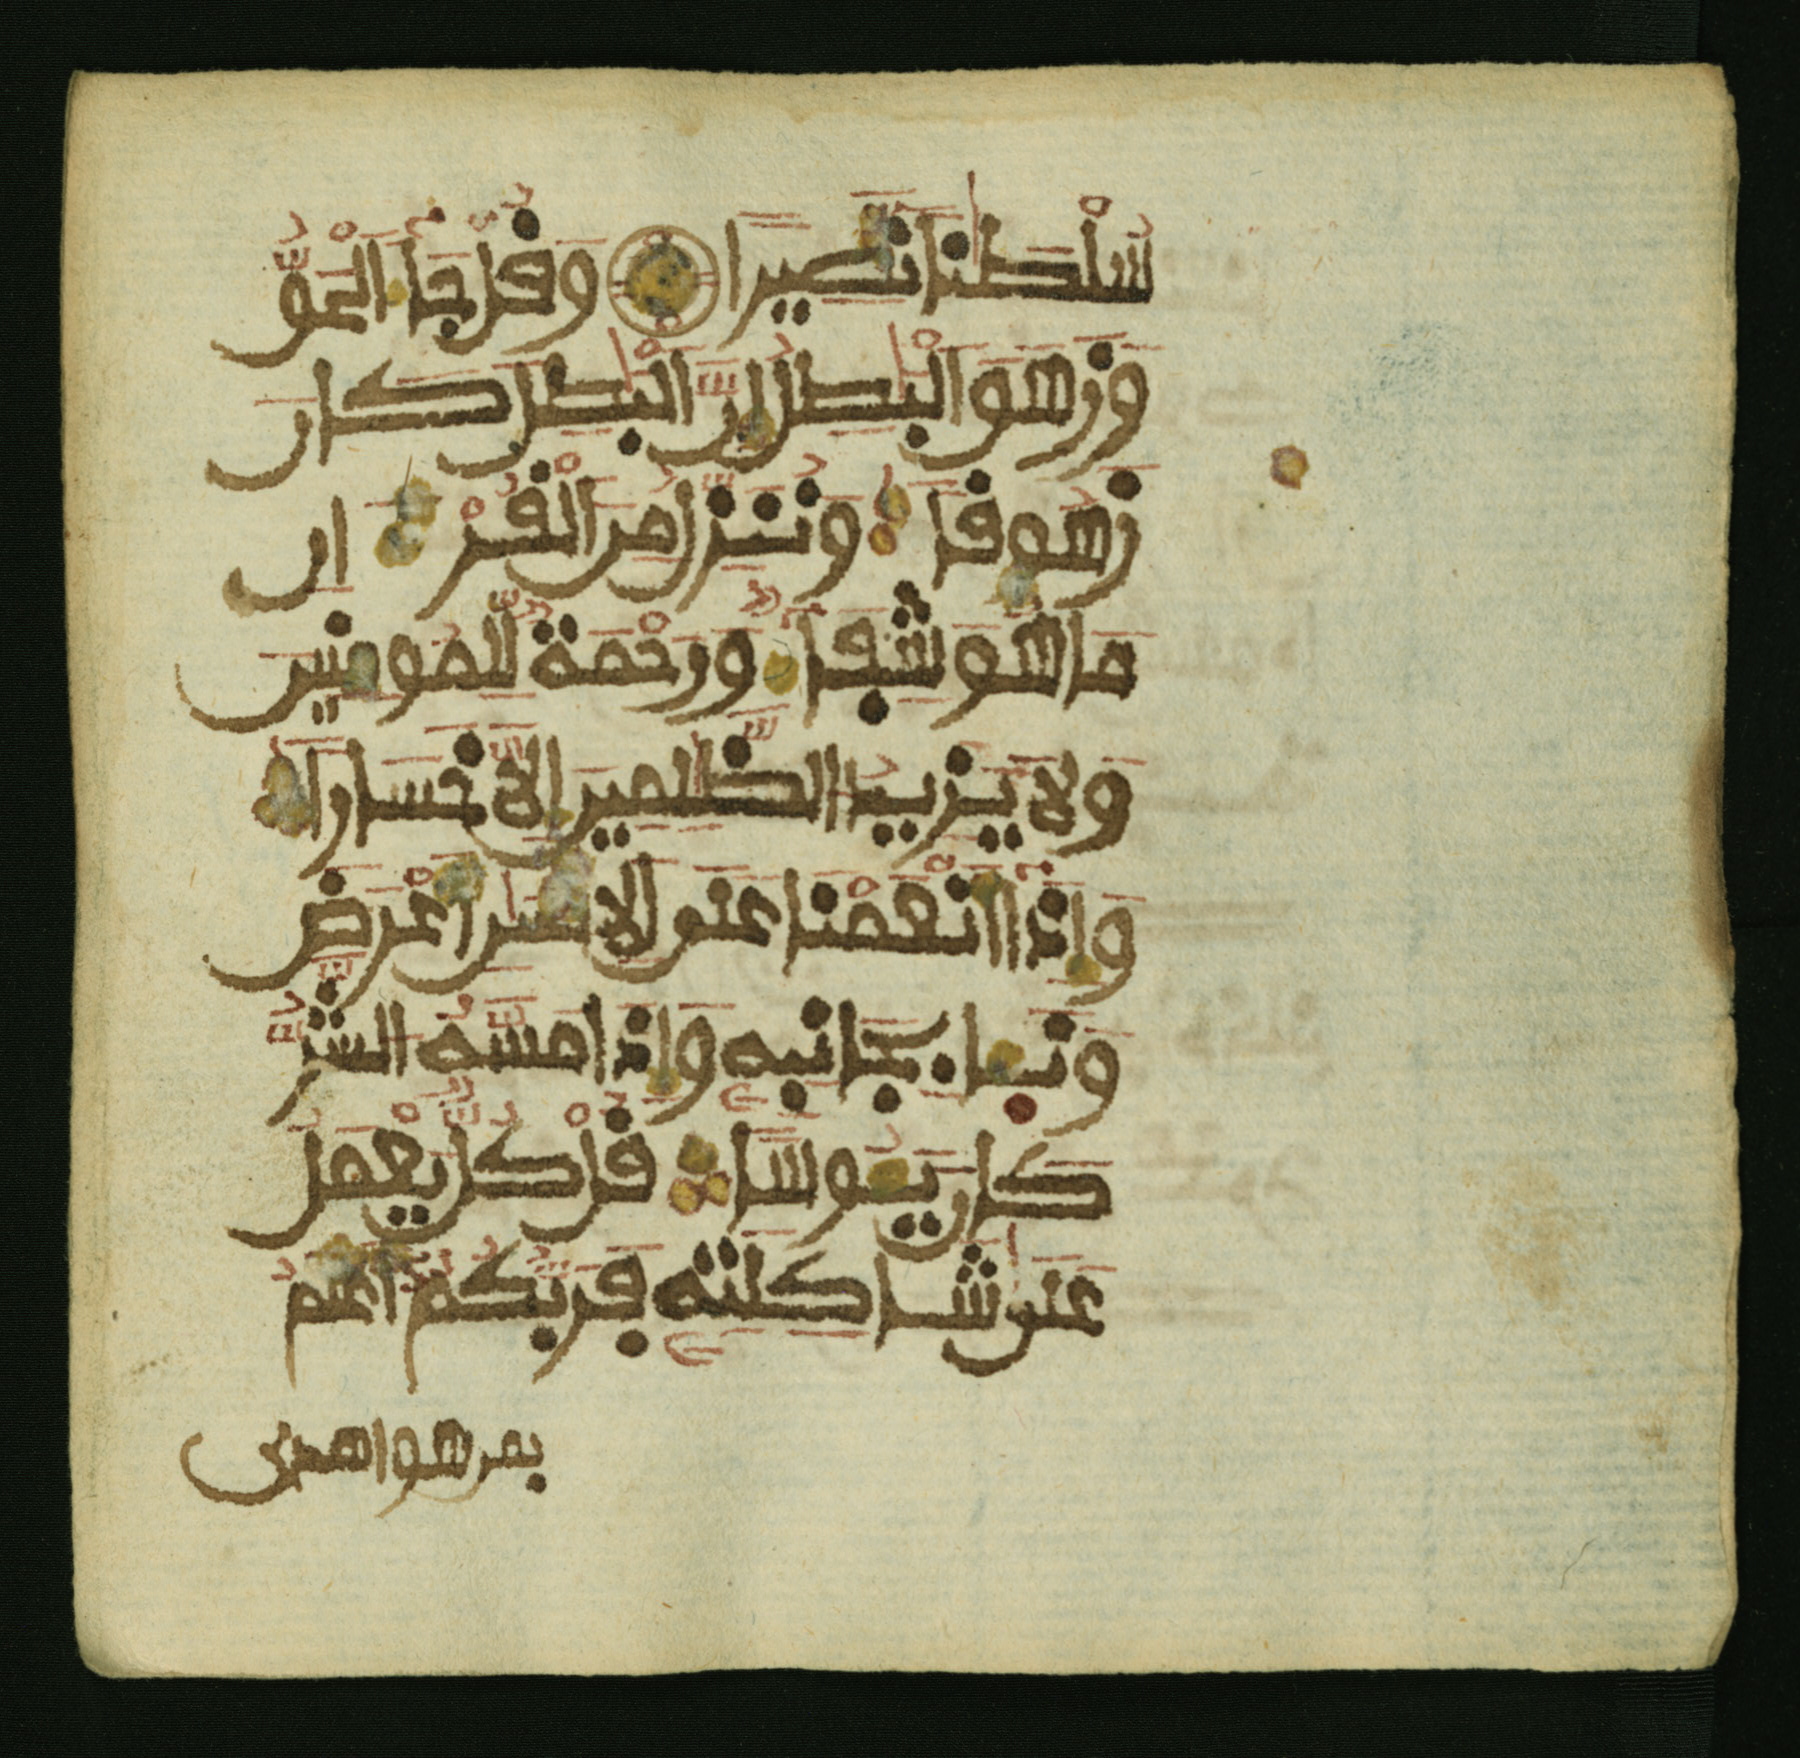 سُلْطَٰنا نَّصِيرا وَقُلْ جَآءَ الْحَقُّ
وَزَهَقَ الْبَٰطِلُ إِنَّ الْبَٰطِلَ كَانَ
زَهُوقا وَنُنَزِّلُ مِنَ الْقُرْءَانِ
مَا هُوَ شِفَآءٌ وَرَحْمَةٌ لِّلْمُومِنِينَ
وَلَا يَزِيدُ الظَّٰلِمِينَ إِلَّا خَسَارا
وَإِذَآ أَنْعَمْنَا عَلَى الْإِنسَٰنِ أَعْرَضَ
وَنَـَٔا بِجَانِبِهِ وَإِذَا مَسَّهُ الشَّرُّ
كَانَ يَـُٔوسا قُلْ كُلٌّ يَعْمَلُ
عَلَىٰ شَاكِلَتِهِ فَرَبُّكُمْ أَعْلَمُ
بمن هو اهدى